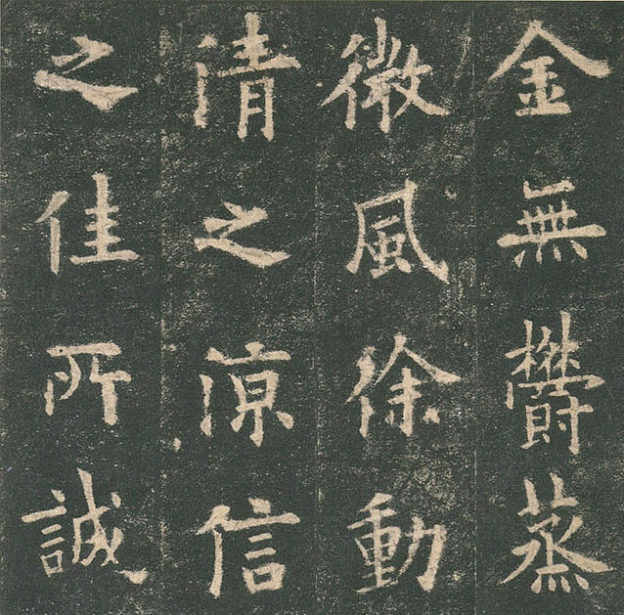 金無欝蒸
微風徐動
清之涼信
之佳所誠